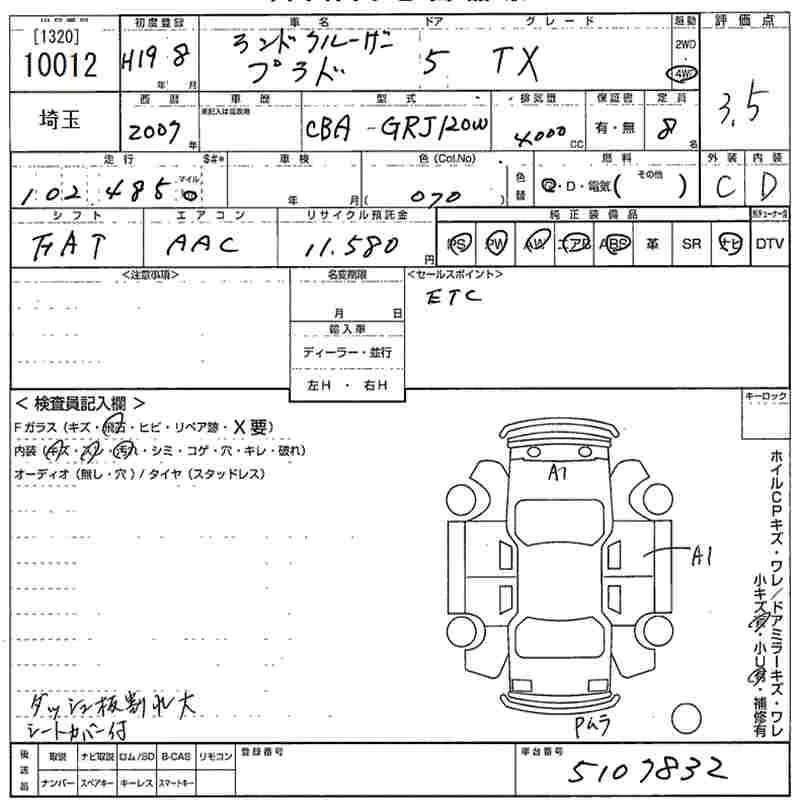 [1320]
10012
埼玉
初度登録
H19 8
年 月
車名
ランドクルーザー
プラド
ドア
5
グレード
TX
駆動
2WD
4WD
評価点
3.5
西暦
2007
年
車歴
未記入は自家用
型式
CBA-GRJ120W
排気量
4000
CC
保証書
有・無
定員
8
名
走行
102,485
マイル
$#*
車検
年 月
色(Col.No)
( 070 )
色替
燃料
G・D・電気( その他 )
外装
C
内装
D
シフト
FAT
エアコン
AAC
リサイクル預託金
11.580
円
純正装備品
PS PW AW エアB ABS 革 SR ナビ DTV
<注意事項>
名変期限
月 日
輸入車
ディーラー・並行
左H ・ 右H
<セールスポイント>
ETC
< 検査員記入欄 >
Fガラス(キズ・飛石・ヒビ・リペア跡・X要)
内装(キズ・スレ・汚れ・シミ・コゲ・穴・キレ・破れ)
オーディオ(無し・穴)/タイヤ(スタッドレス)
キーロック
A1
A1
Pムラ
ホイルCPキズ・ワレ/ドアミラーキズ・ワレ
小キズ有・小U有・補修有
ダッシュ板割れ大
シートカバー付
後送品
取説 ナビ取説 ロム/SD B-CAS リモコン
ナンバー スペアキー キーレス スマートキー
登録番号
車台番号
5107832